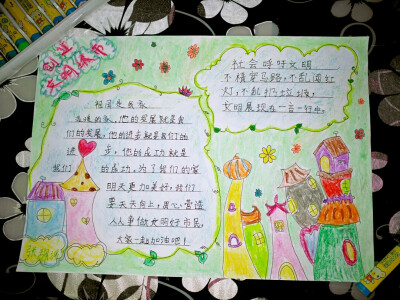 创业
文明城市
祖国是我家
亲爱的家,他的发展就是我
们的发展,他的进步就是我们的
进步,他的成功就是
我们的成功,为了我们的家
明天更加美好,我们
要天天向上,虚心营造
人人争做文明好市民,
大家一起加油吧!
社会呼吁文明
不横穿马路,不乱闯红
灯,不乱扔垃圾,
文明展现在一言一行中。